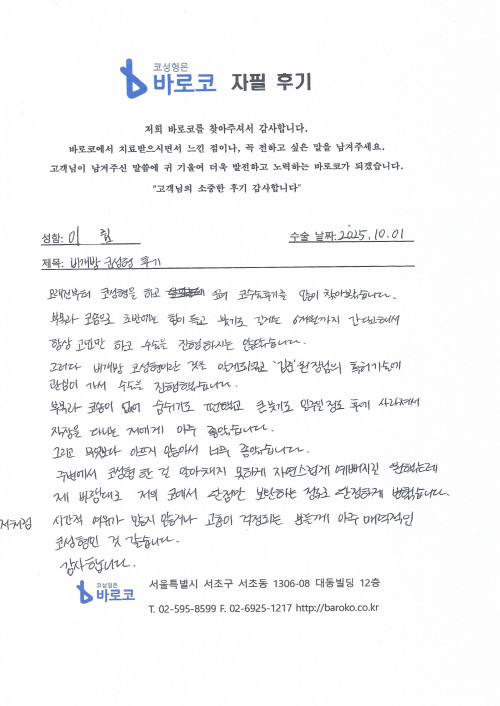 코성형은
바로코 자필 후기
저희 바로코를 찾아주셔서 감사합니다.
바로코에서 치료받으시면서 느낀 점이나, 꼭 전하고 싶은 말을 남겨주세요.
고객님이 남겨주신 말씀에 귀 기울여 더욱 발전하고 노력하는 바로코가 되겠습니다.
"고객님의 소중한 후기 감사합니다"
성함: 이 수술 날짜: 2025.10.01
제목: 비개방 코성형 후기
오래전부터 코성형을 하고 싶어 코수술후기를 많이 찾아봤습니다.
부목과 코솜으로 초반에는 힘이 들고 붓기도 길게는 6개월까지 간다고해서
항상 고민만 하고 수술을 진행하지는 않았습니다.
그러다 비개방 코성형이란 것을 알게되었고 원장님의 특허기술에
관심이 가서 수술을 진행했습니다.
부목과 코솜이 없어 숨쉬기도 편했고 큰붓기도 일주일 정도 후에 사라져서
직장을 다니는 저에게 아주 좋았습니다.
그리고 무엇보다 아프지 않아서 너무 좋았습니다.
주변에서 코성형 한 걸 알아채지 못하게 자연스럽게 예뻐지길 원했는데
제 바람대로 저의 코에서 단점만 보완하는 정도로 안정하게 변했습니다.
저처럼 시간적 여유가 많지 않거나 고통이 걱정되는 분들께 아주 매력적인
코성형인 것 같습니다.
감사합니다.
코성형은
바로코 서울특별시 서초구 서초동 1306-08 대동빌딩 12층
T. 02-595-8599 F. 02-6925-1217 http://baroko.co.kr